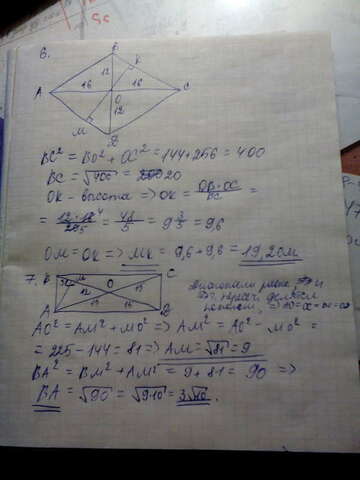 6.
B
K
12
A 16 16 C
O
12
M
D
BC² = BO² + OC² = 144 + 256 = 400
BC = √400 = 20
OK - высота => OK = OB · OC / BC =
= 12 · 16 / 20 = 48 / 5 = 9 3/5 = 9,6
OM = OK => MK = 9,6 + 9,6 = 19,20 м
7. B M C
O
12 15
15 15
A D
Диагонали равны, и
пересеч. делятся
пополам, => AO =
AO² = AM² + MO² => AM² = AO² - MO² =
= 225 - 144 = 81 => AM = √81 = 9
BA² = BM² + AM² = 9 + 81 = 90 =>
BA = √90 = √9·10 = 3√10.